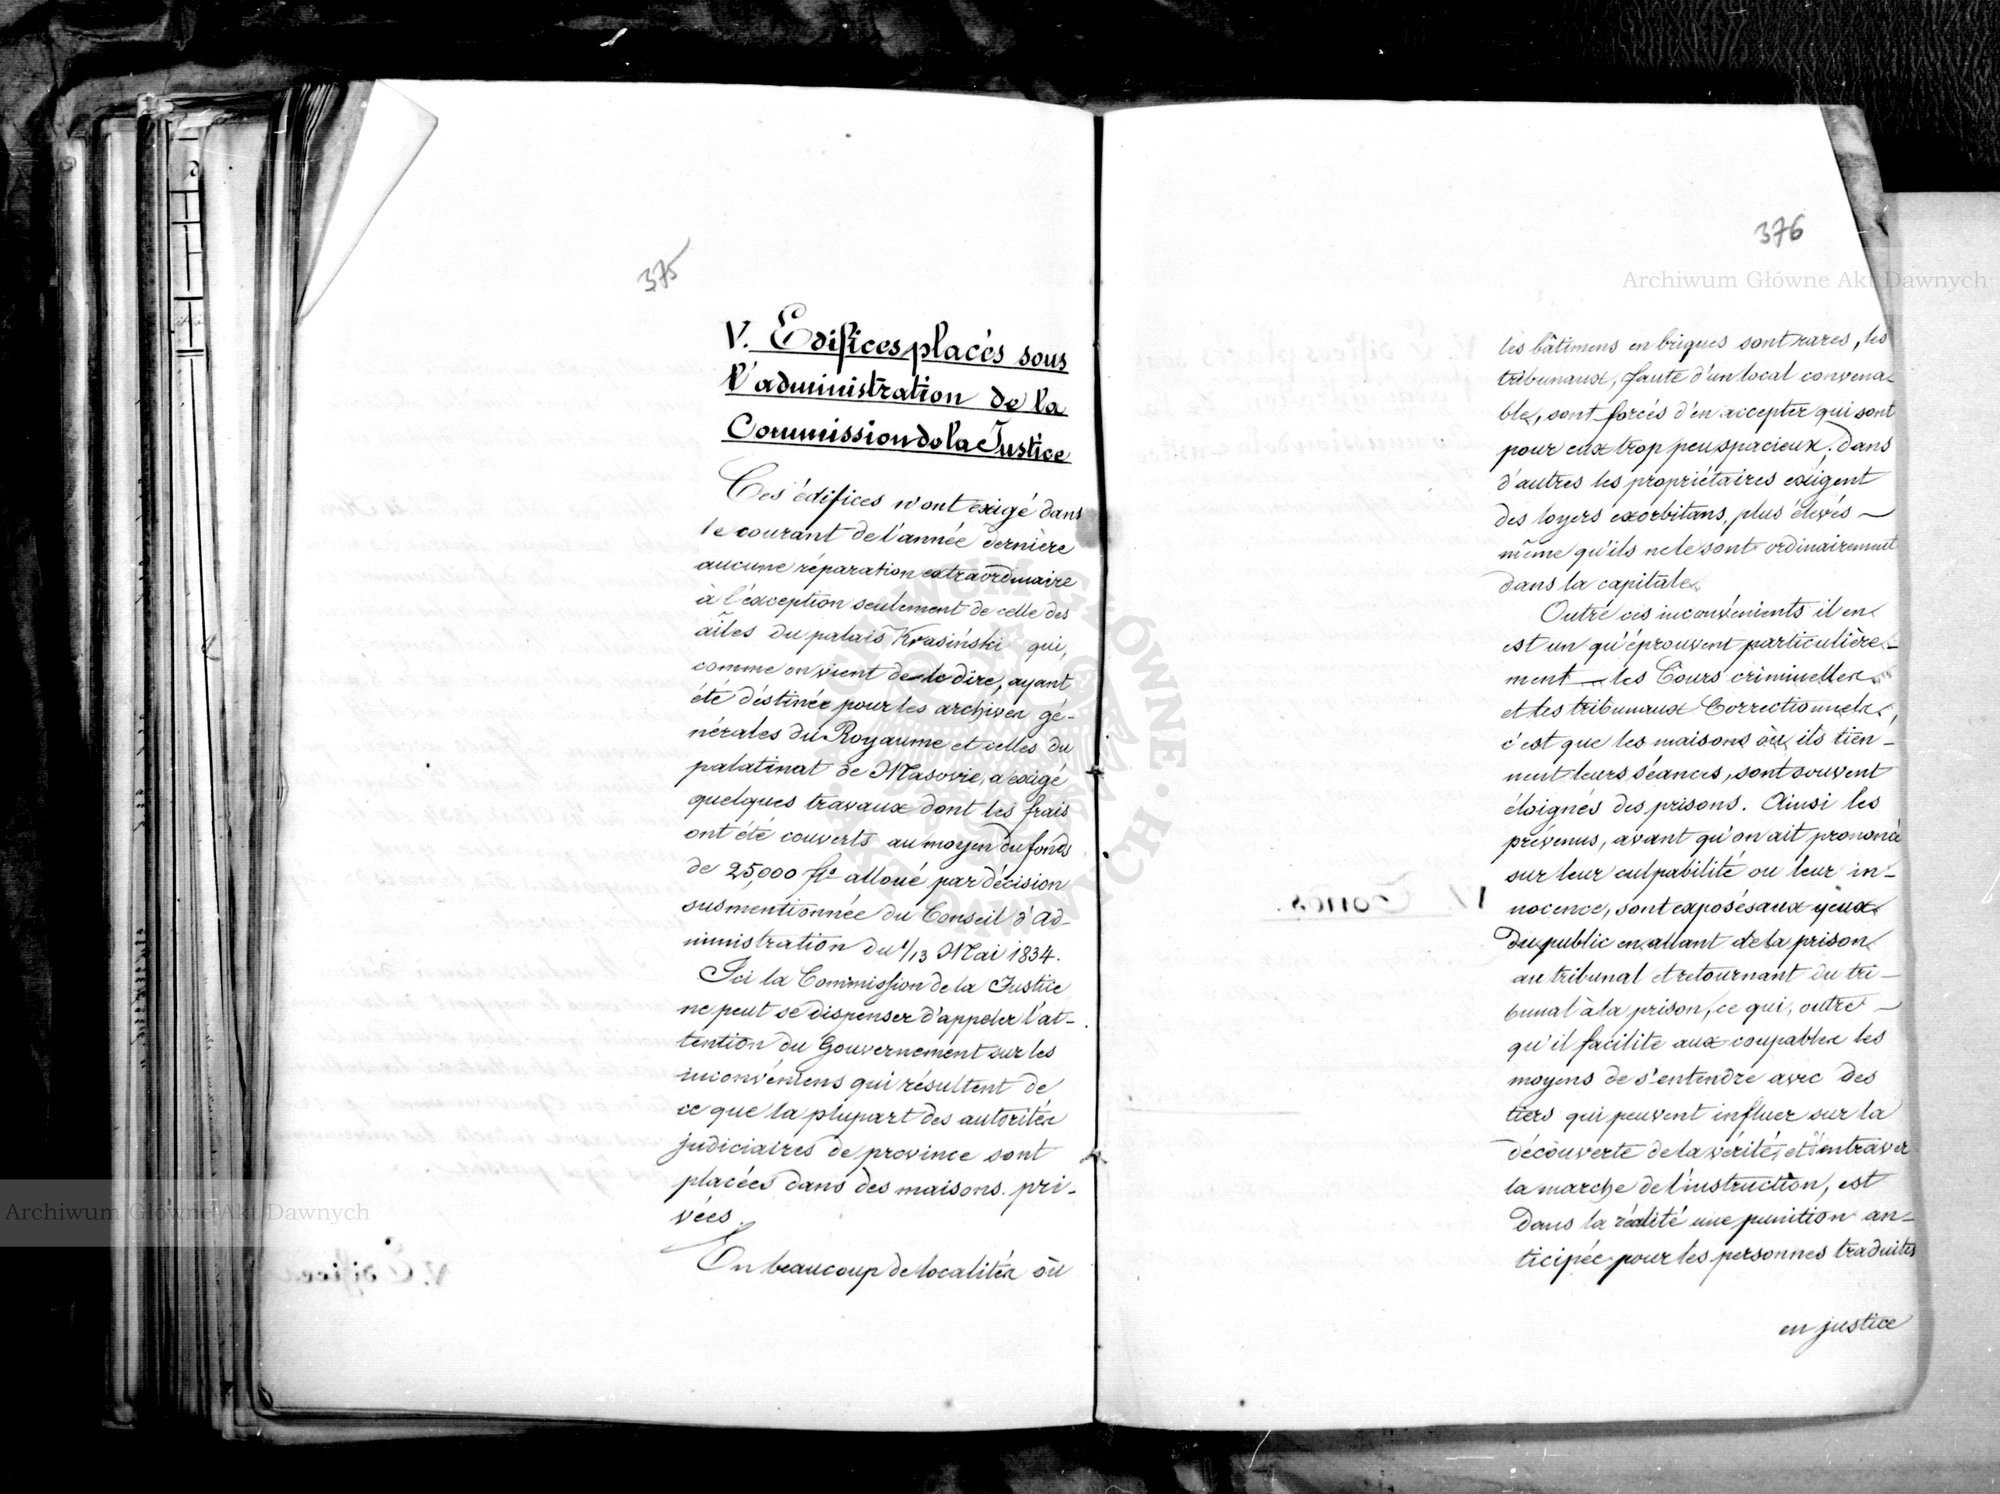 375
V. Edifices placés sous
l'administration de la
Commission de la Justice
Ces édifices n'ont exigé dans
le courant de l'année dernière
aucune réparation extraordinaire
à l'exception seulement de celle des
ailes du palais Krasiński qui,
comme on vient de le dire, ayant
été déstinée pour les archives gé-
nérales du Royaume et celles du
palatinat de Masovie, a exigé
quelques travaux dont les frais
ont été couverts au moyen du fonds
de 25,000 fl. alloué par décision
susmentionnée du Conseil d'Ad-
ministration du 1/13 Mai 1834.
Ici la Commission de la Justice
ne peut se dispenser d'appeler l'at-
tention du Gouvernement sur les
inconvéniens qui résultent de
ce que la plupart des autorités
judiciaires de province sont
placées dans des maisons pri-
vées.
En beaucoup de localités où
V. Edifices
376
les bâtimens en briques sont rares, les
tribunaux, faute d'un local convena-
ble, sont forcés d'en accepter qui sont
pour eux trop peu spacieux; dans
d'autres les propriétaires exigent
des loyers exorbitans, plus élevés
même qu'ils ne le sont ordinairement
dans la capitale.
Outre ces inconvénients il en
est un qu'éprouvent particulière-
ment les Cours criminelles
et les tribunaux Correctionnels,
c'est que les maisons où ils tien-
nent leurs séances, sont souvent
éloignés des prisons. Ainsi les
prévenus, avant qu'on ait prononcé
sur leur culpabilité ou leur in-
nocence, sont exposés aux yeux
du public en allant de la prison
au tribunal et retournant du tri-
bunal à la prison, ce qui, outre
qu'il facilite aux coupables les
moyens de s'entendre avec des
tiers qui peuvent influer sur la
découverte de la vérité, et entraver
la marche de l'instruction, est
dans la réalité une punition an-
ticipée pour les personnes traduites
en justice
Archiwum Główne Akt Dawnych
Archiwum Główne Akt Dawnych
ARCHIWUM GŁÓWNE